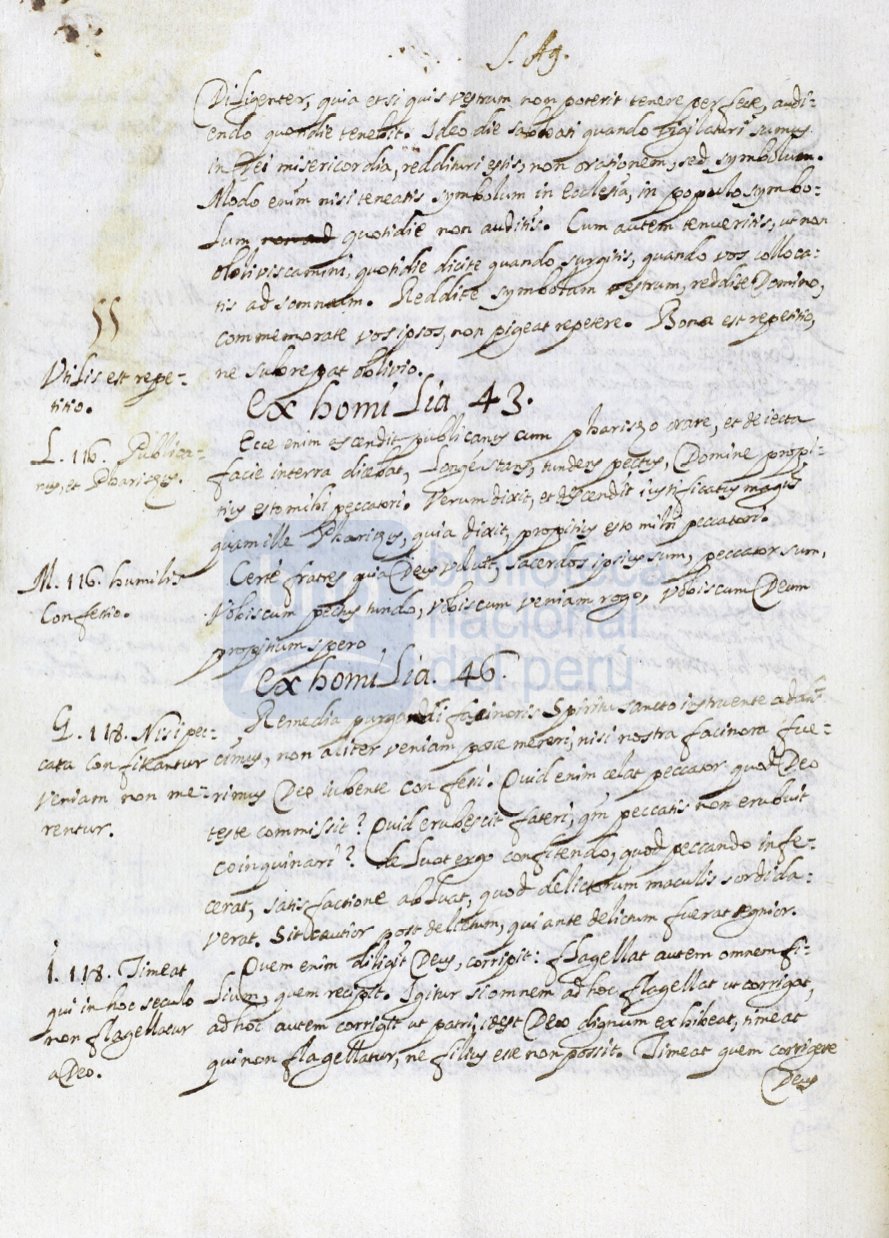 S. Ag.
Diligenter, quia etsi quis vestrum non poterit tenere perfecte, audi-
endo quotidie tenebit. Ideo die sabbati quando vigilaturi sumus
in Dei misericordia, reddituri estis, non orationem, sed symbolum.
Modo enim nisi teneatis symbolum in ecclesia, in populo symbo-
lum quotidie non auditis. Cum autem tenueritis, ut non
obliviscamini, quotidie dicite quando surgitis, quando vos colloca-
tis ad somnum. Reddite symbolum vestrum, reddite Domino,
commemorate vos ipsos, non pigeat repetere. Bona est repetitio,
ne subrepat oblivio.
Utilis est repe-
titio.
ex homilia 43.
L. 116. Publica-
nus, et Pharisęus.
Ecce enim ascendit publicanus cum pharisęo orare, et deiecta
facie in terra dicebat, Longe stans, tundens pectus, Domine propi-
tius esto mihi peccatori. Verum dixit, et descendit iustificatus magis
quam ille Pharisęus, quia dixit, propitius esto mihi peccatori.
M. 116. humilis
Confessio.
Certe fratres quia Deus voluit, sacerdos ipsius sum, peccator sum,
Vobiscum pectus tundo, vobiscum veniam rogo, vobiscum Deum
propitium spero
ex homilia. 46.
G. 118. Nisi pec-
cata confiteantur
veniam non me-
rentur.
Remedia purgandi facinoris Spiritu sancto instruente
cimus, non aliter veniam posse mereri, nisi nostra facinora fue-
rimus Deo iubente confessi. Quid enim celat peccator quod Deo
teste commissit? Quid erubescit fateri, qm peccatis non erubuit
coinquinari? deluat ergo confitendo, quod peccando infe-
cerat, satisfactione abluat, quod delictorum maculis sordida-
verat. Sit cautior post delictum, qui ante delictum fuerat segnior.
I. 118. Timeat
qui in hoc seculo
non flagellatur
a Deo.
Quem enim diligit Deus, corripit: flagellat autem omnem fi-
lium, quem recipit. Igitur si omnem ad hoc flagellat ut corrigat,
ad hoc autem corrigit ut patri, id est Deo dignum exhibeat, timeat
qui non flagellatur, ne filius esse non possit. Timeat quem corrigere
Deus
biblioteca
nacional
del perú